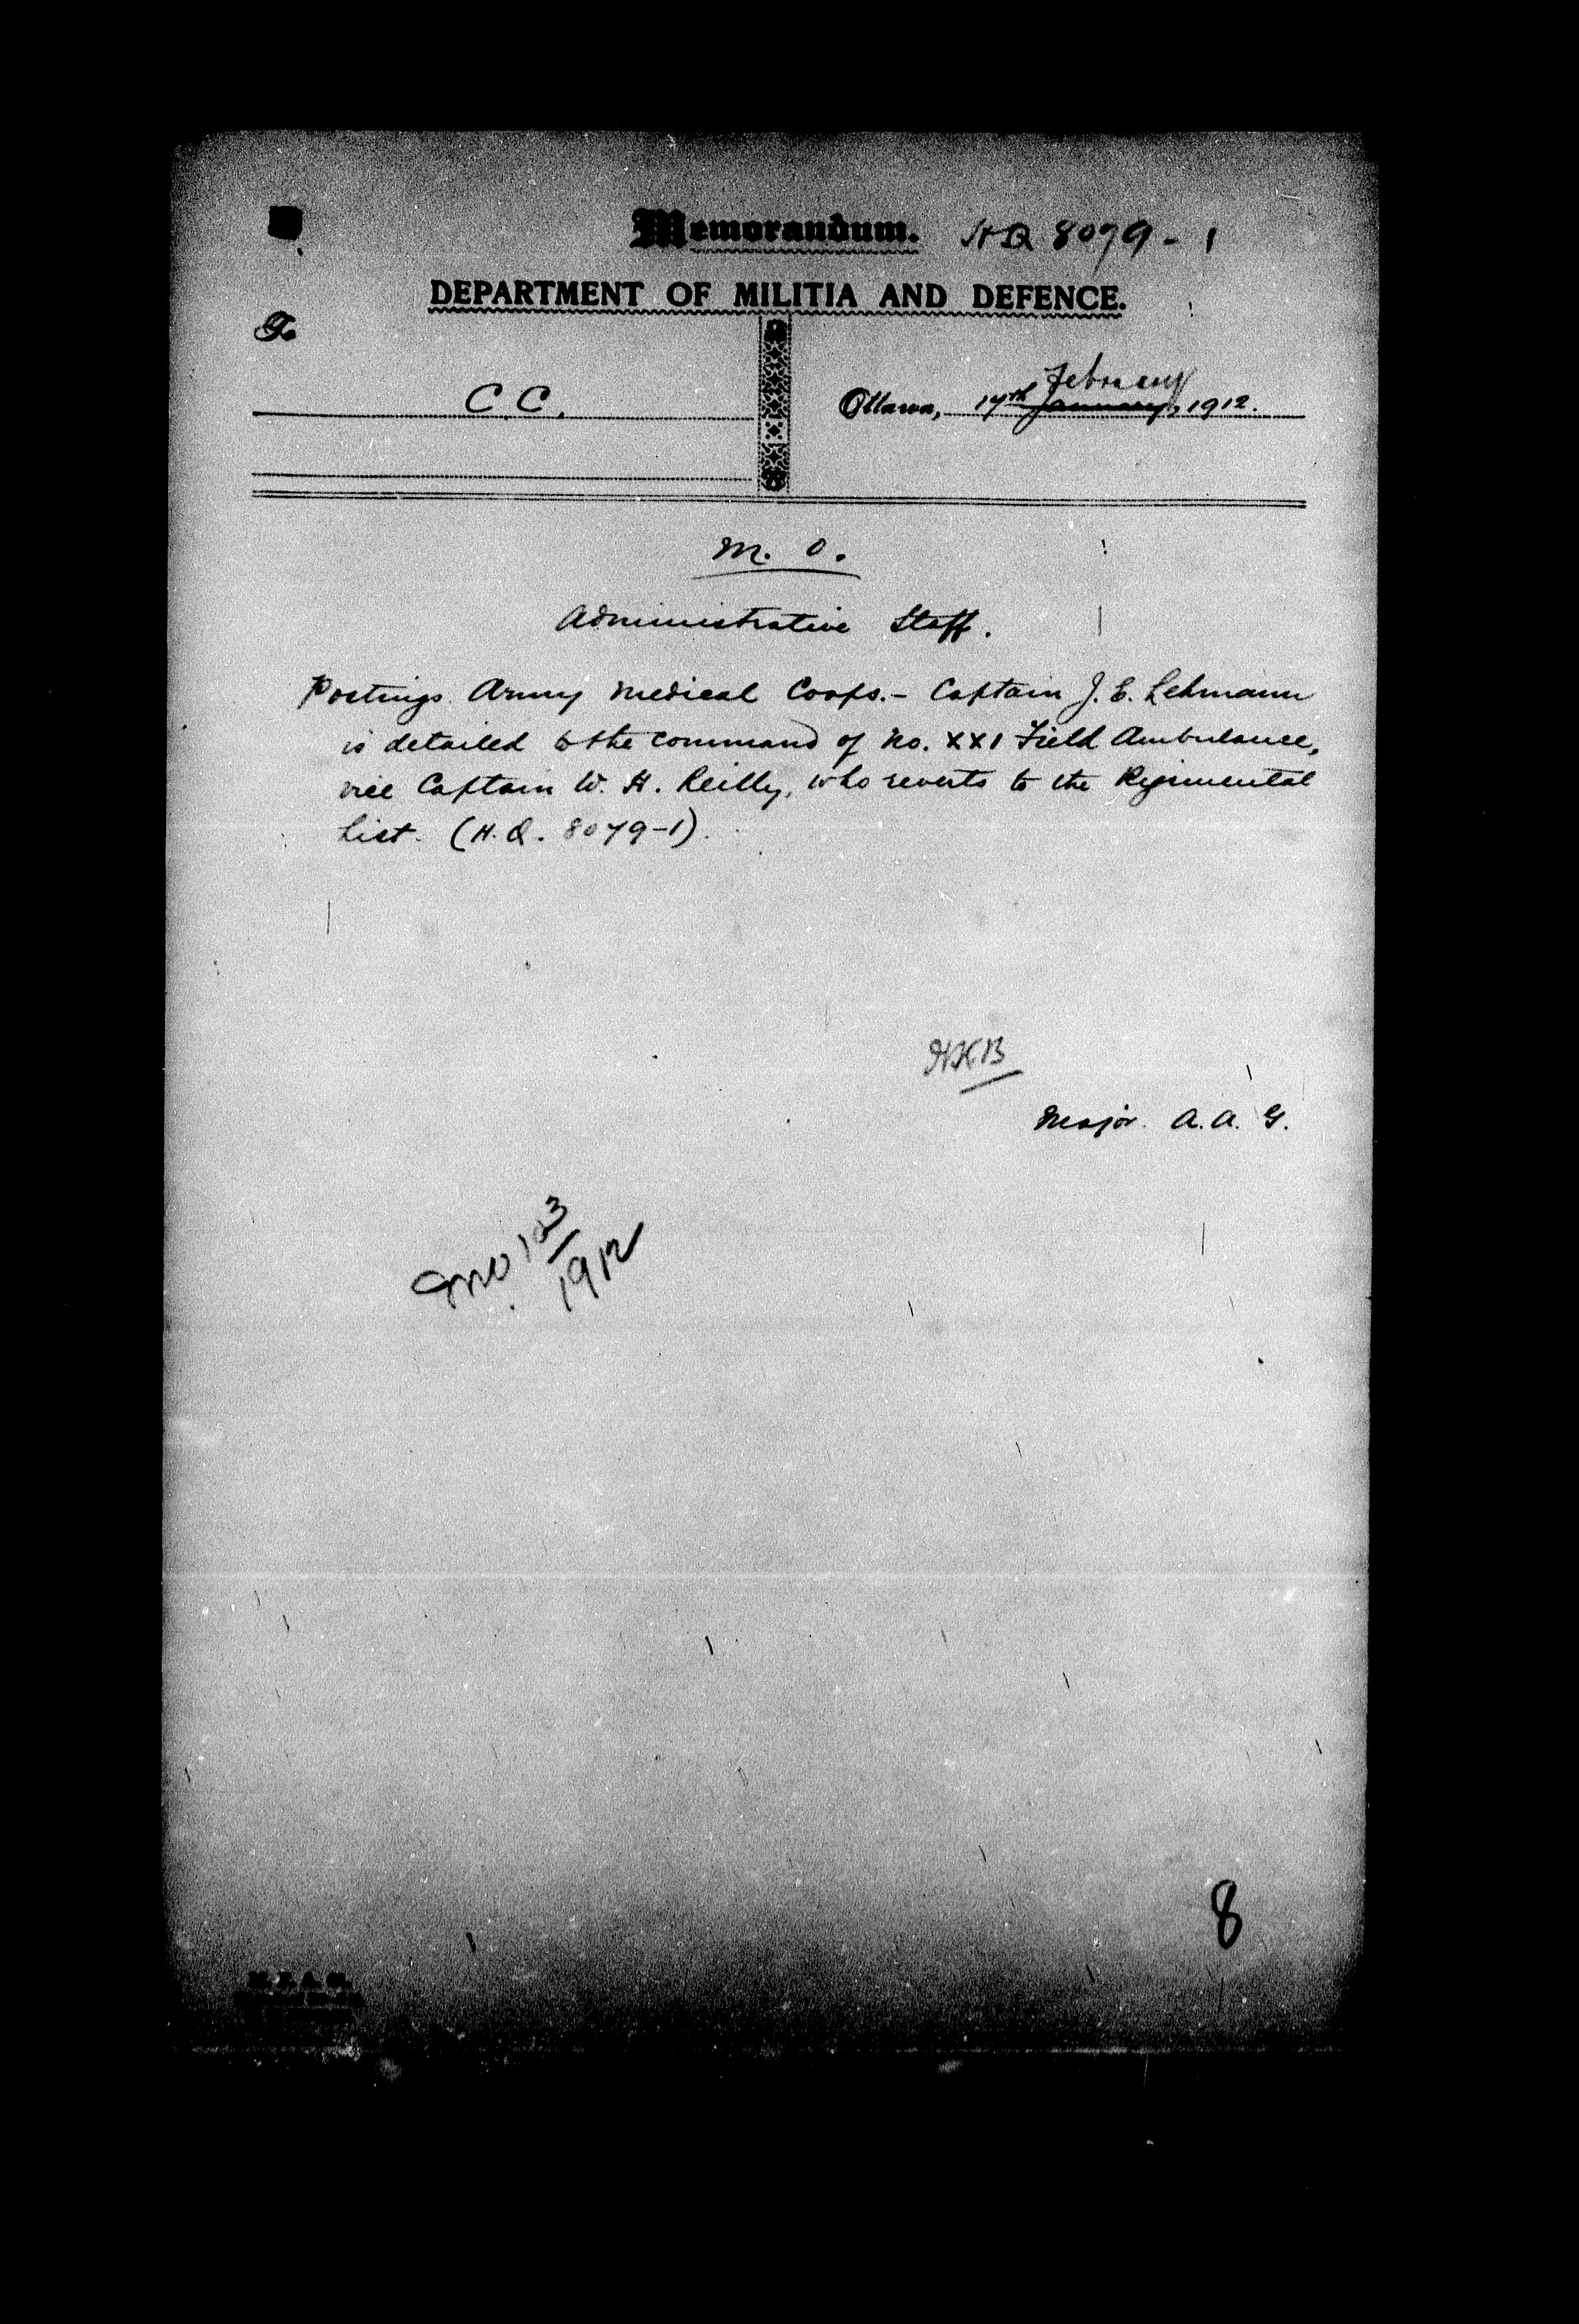 Memorandum. HQ 8079-1
DEPARTMENT OF MILITIA AND DEFENCE.
To
February
C.C.
Ottawa, 17th January, 1912.
M. O.
Administrative Staff.
Postings Army Medical Corps.- Captain J. E. Lehmann
is detailed to the command of No. XXI Field Ambulance,
vice Captain W. H. Reilly, who reverts to the Regimental
List. (H.Q. 8079-1).
Major. A. A. G.
1912
8